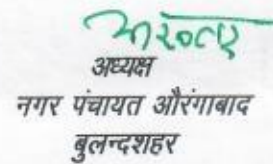 अध्यक्ष
नगर पंचायत औरंगाबाद
बुलन्दशहर